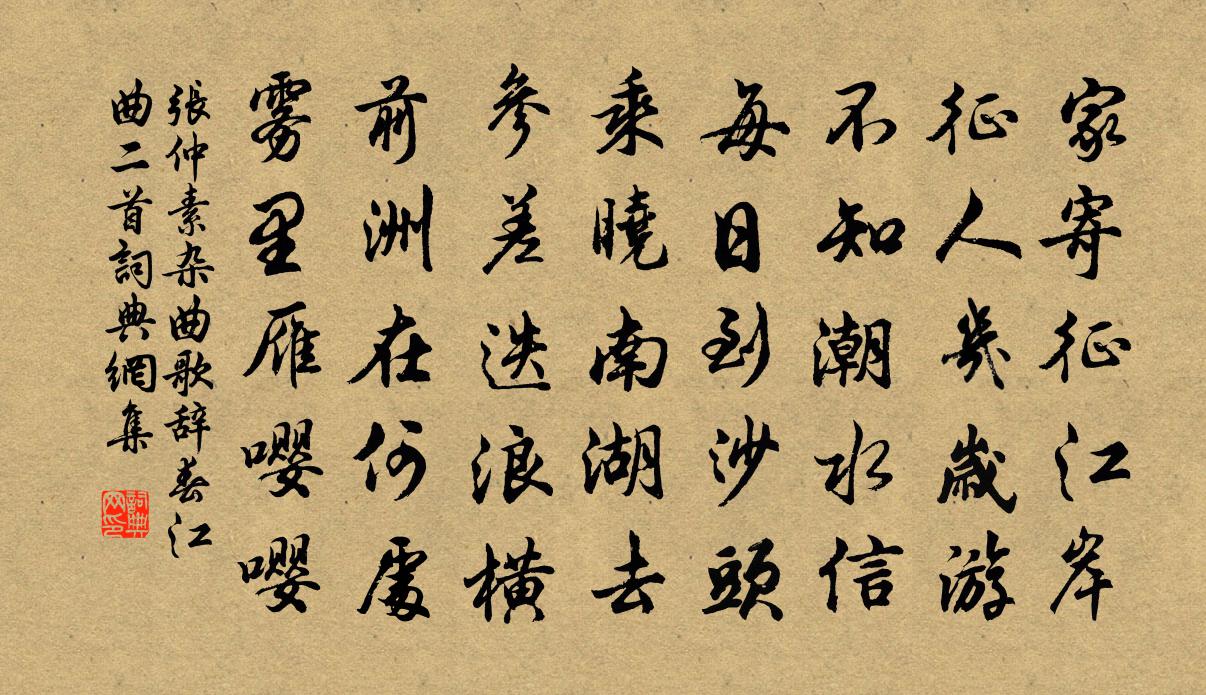 家寄征江岸
征人幾歲游
不知潮水信
每日到沙頭
乘曉南湖去
參差迭浪橫
前洲在何處
雾里雁嚶嚶
張仲素杂曲歌辞春江
曲二首詞典網集
詞典
网印